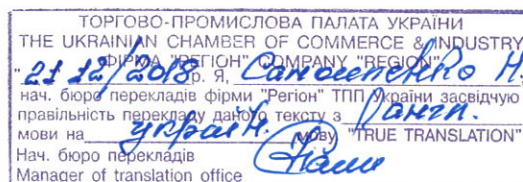 ТОРГОВО-ПРОМИСЛОВА ПАЛАТА УКРАЇНИ
THE UKRAINIAN CHAMBER OF COMMERCE & INDUSTRY
ФІРМА "РЕГІОН" COMPANY "REGION"
"21 12/2018 р. Я,
нач. бюро перекладів фірми "Регіон" ТПП України засвідчую
правильність перекладу даного тексту з англ.
мови на україн. мову "TRUE TRANSLATION"
Нач. бюро перекладів
Manager of translation office